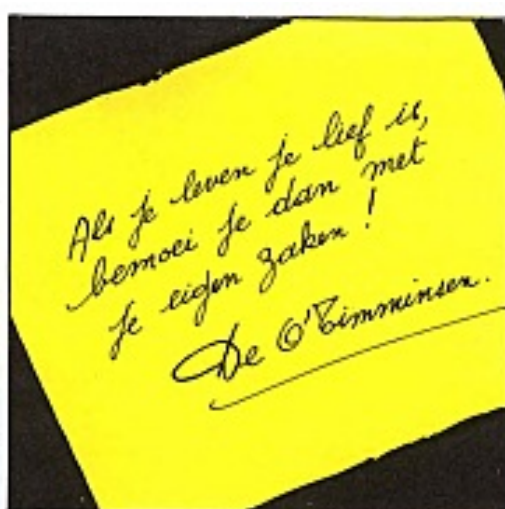 Als je leven je lief is,
bemoei je dan met
je eigen zaken!
De O'Timminsen.